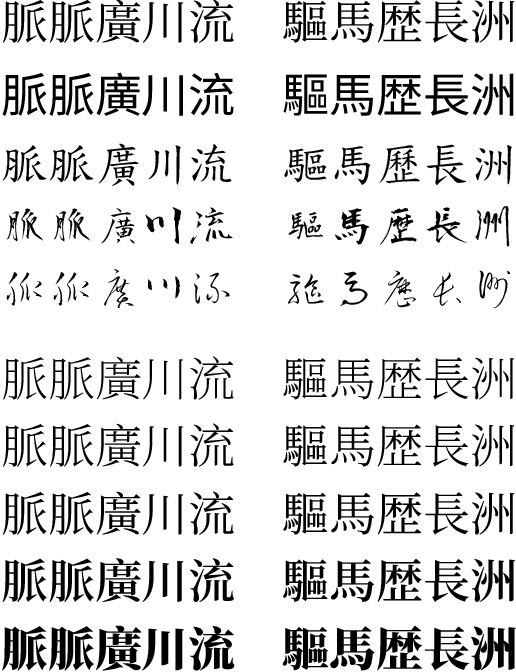 脈脈廣川流 驅馬歴長洲
脈脈廣川流 驅馬歴長洲
脈脈廣川流 驅馬歷長洲
脈脈廣川流 驅馬歷長洲
脈脈廣川流 驅馬歷長洲
脈脈廣川流 驅馬歴長洲
脈脈廣川流 驅馬歴長洲
脈脈廣川流 驅馬歴長洲
脈脈廣川流 驅馬歴長洲
脈脈廣川流 驅馬歴長洲